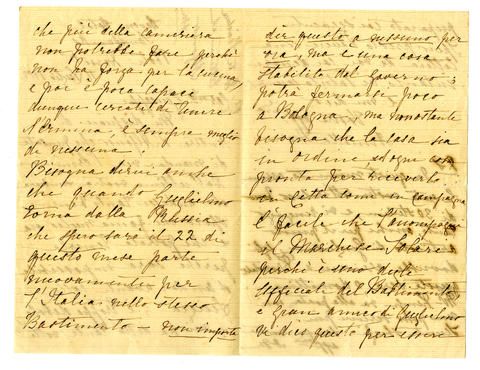 che più della cameriera
non potrebbe fare perchè
non ha forza per la cucina,
e poi è poca capace
dunque cercate di tenere
Erminia, è sempre meglio
di nessuna.
Bisogna dirvi anche
che quando Guglielmo
torna dalla Russia
che spero sarà il 22 di
questo mese parte
nuovamente per
l'Italia nello stesso
Bastimento — non importa
dir questo a nessuno per
ora, ma è una cosa
stabilita dal governo;
potrà fermarsi poco
a Bologna, ma nonostante
bisogna che la casa sia
in ordine ed ogni cosa
pronta per riceverlo
in città come in campagna
È facile che l'accompagni
il Marchese Solari
perchè è uno degli
Ufficiali del Bastimento
e gran amico di Guglielmo
vi dico questo per essere